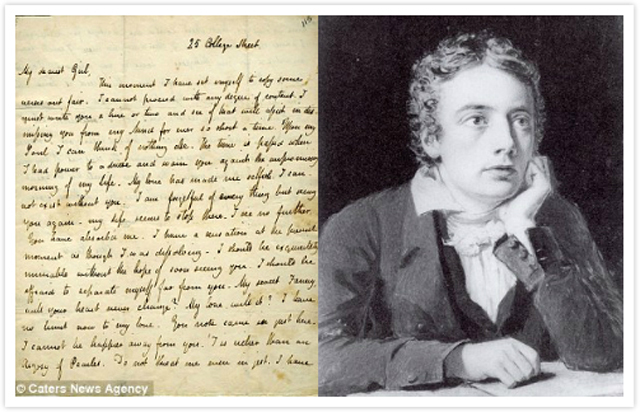 25 College Street
My dearest Girl,
This moment I have set myself to copy some
verses out fair. I cannot proceed with any degree of content. I
must write you a line or two and see if that will assist in dis
missing you from my Mind for ever so short a time. Upon my
Soul I can think of nothing else. The time is passed when
I had power to advise and warn you against the unpromising
morning of my Life. My love has made me selfish. I can
not exist without you. I am forgetful of every thing but seeing
you again. my Life seems to stop there. I see no further.
You have absorb'd me. I have a sensation at the present
moment as though I was dissolving. I should be exquisitely
miserable without the hope of soon seeing you. I should be
affraid to separate myself far from you. My sweet Fanny,
will your heart never change? My love will it? I have
no limit now to my love. You note came in just here.
I cannot be happier away from you. 'Tis richer than an
Argosy of Pearles. Do not threat me even in jest. I have
© Caters News Agency